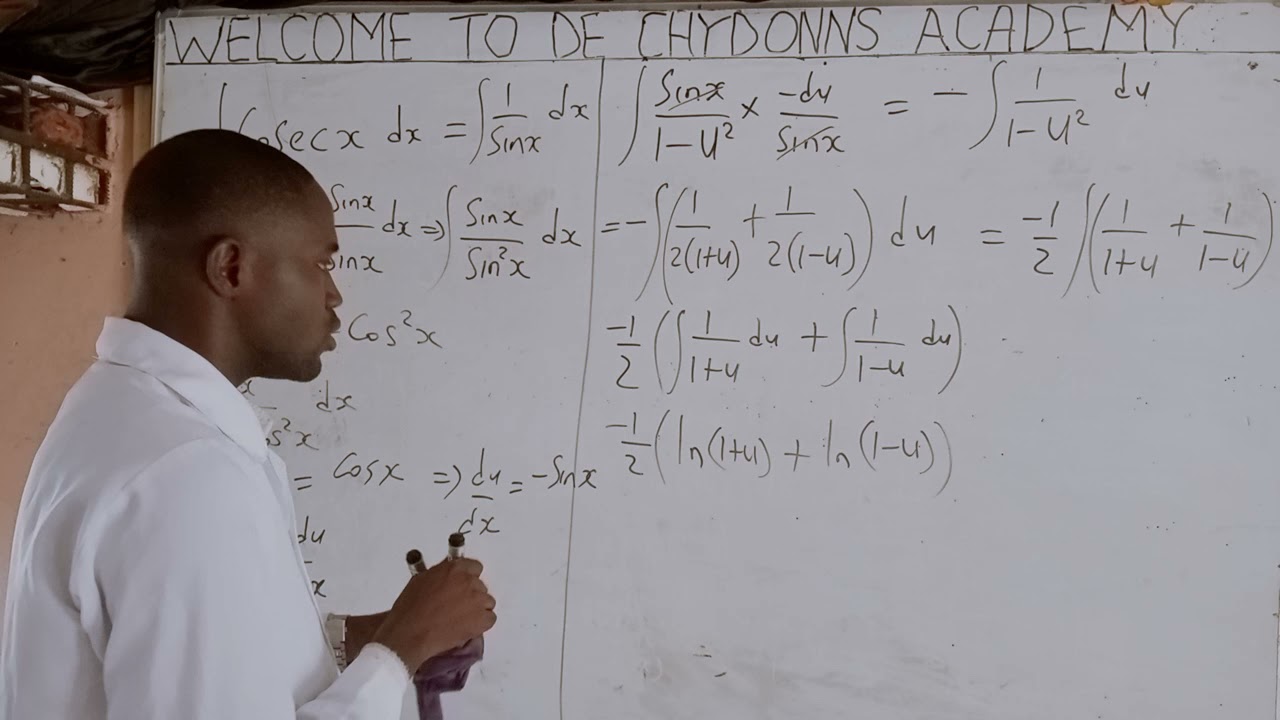 WELCOME TO DE CHYDONNS ACADEMY
∫ Cosec x dx = ∫ 1/Sinx dx
Sinx/Sinx dx ⇒ ∫ Sinx/Sin²x dx
Cos²x
dx
s²x
= Cosx ⇒ du/dx = -Sinx
du
x
∫ Sinx/1-u² × -du/Sinx = - ∫ 1/1-u² du
= - ∫ (1/2(1+u) + 1/2(1-u)) du = -1/2 ∫ (1/1+u + 1/1-u)
-1/2 (∫ 1/1+u du + ∫ 1/1-u du)
-1/2 (ln(1+u) + ln(1-u))